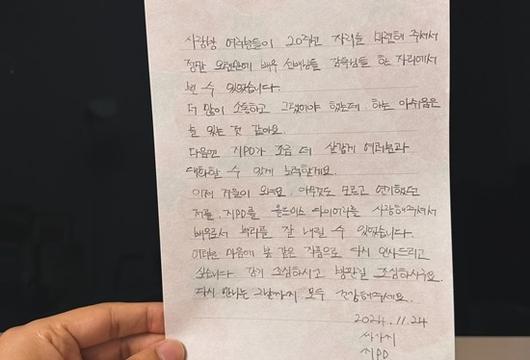 사랑하는 여러분들이 20주년 자리를 마련해 주셔서
정말 오랜만에 배우 선배님들 감독님들 한 자리에서
뵐 수 있었습니다.
더 많이 소통하고 그랬어야 했는데 하는 아쉬움은
늘 있는 것 같아요.
다음엔 지PD가 조금 더 살갑게 여러분과
대화할 수 있게 노력할게요.
이제 겨울이 와요. 아무것도 모르고 연기했던
저를, 지PD를 올드미스 다이어리를 사랑해주셔서
배우로서 뿌리를 잘 내릴 수 있었습니다.
이러한 마음에 꽃 같은 작품으로 다시 인사드리고
싶습니다. 감기 조심하시고 빙판길 조심하시구요.
다시 만나는 그날까지 모두 건강해주세요.
2024.11.24
지PD